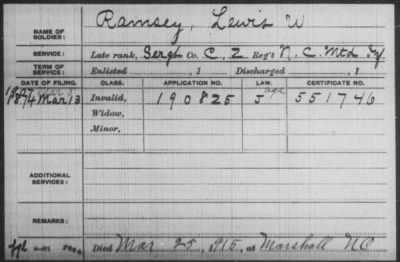 NAME OF SOLDIER: Ramsey, Lewis W
SERVICE: Late rank, Sergt Co. C, 2 Reg't N. C. Mtd Inf.
TERM OF SERVICE: Enlisted , 1 Discharged , 1
DATE OF FILING. CLASS. APPLICATION NO. LAW. CERTIFICATE NO.
1907 Mar 8 age
1874 Mar 13 Invalid, 190825 J 551746
Widow,
Minor,
ADDITIONAL SERVICES:
REMARKS:
Died Mar 25, 915, at Marshall NC